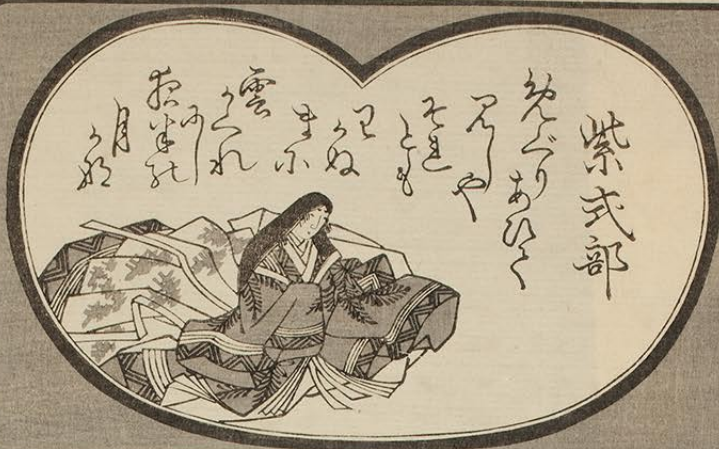 紫式部
めぐりあひて
みしや
それ
とも
わかぬ
まに
雲
かくれ
にし
夜半の
月
かな